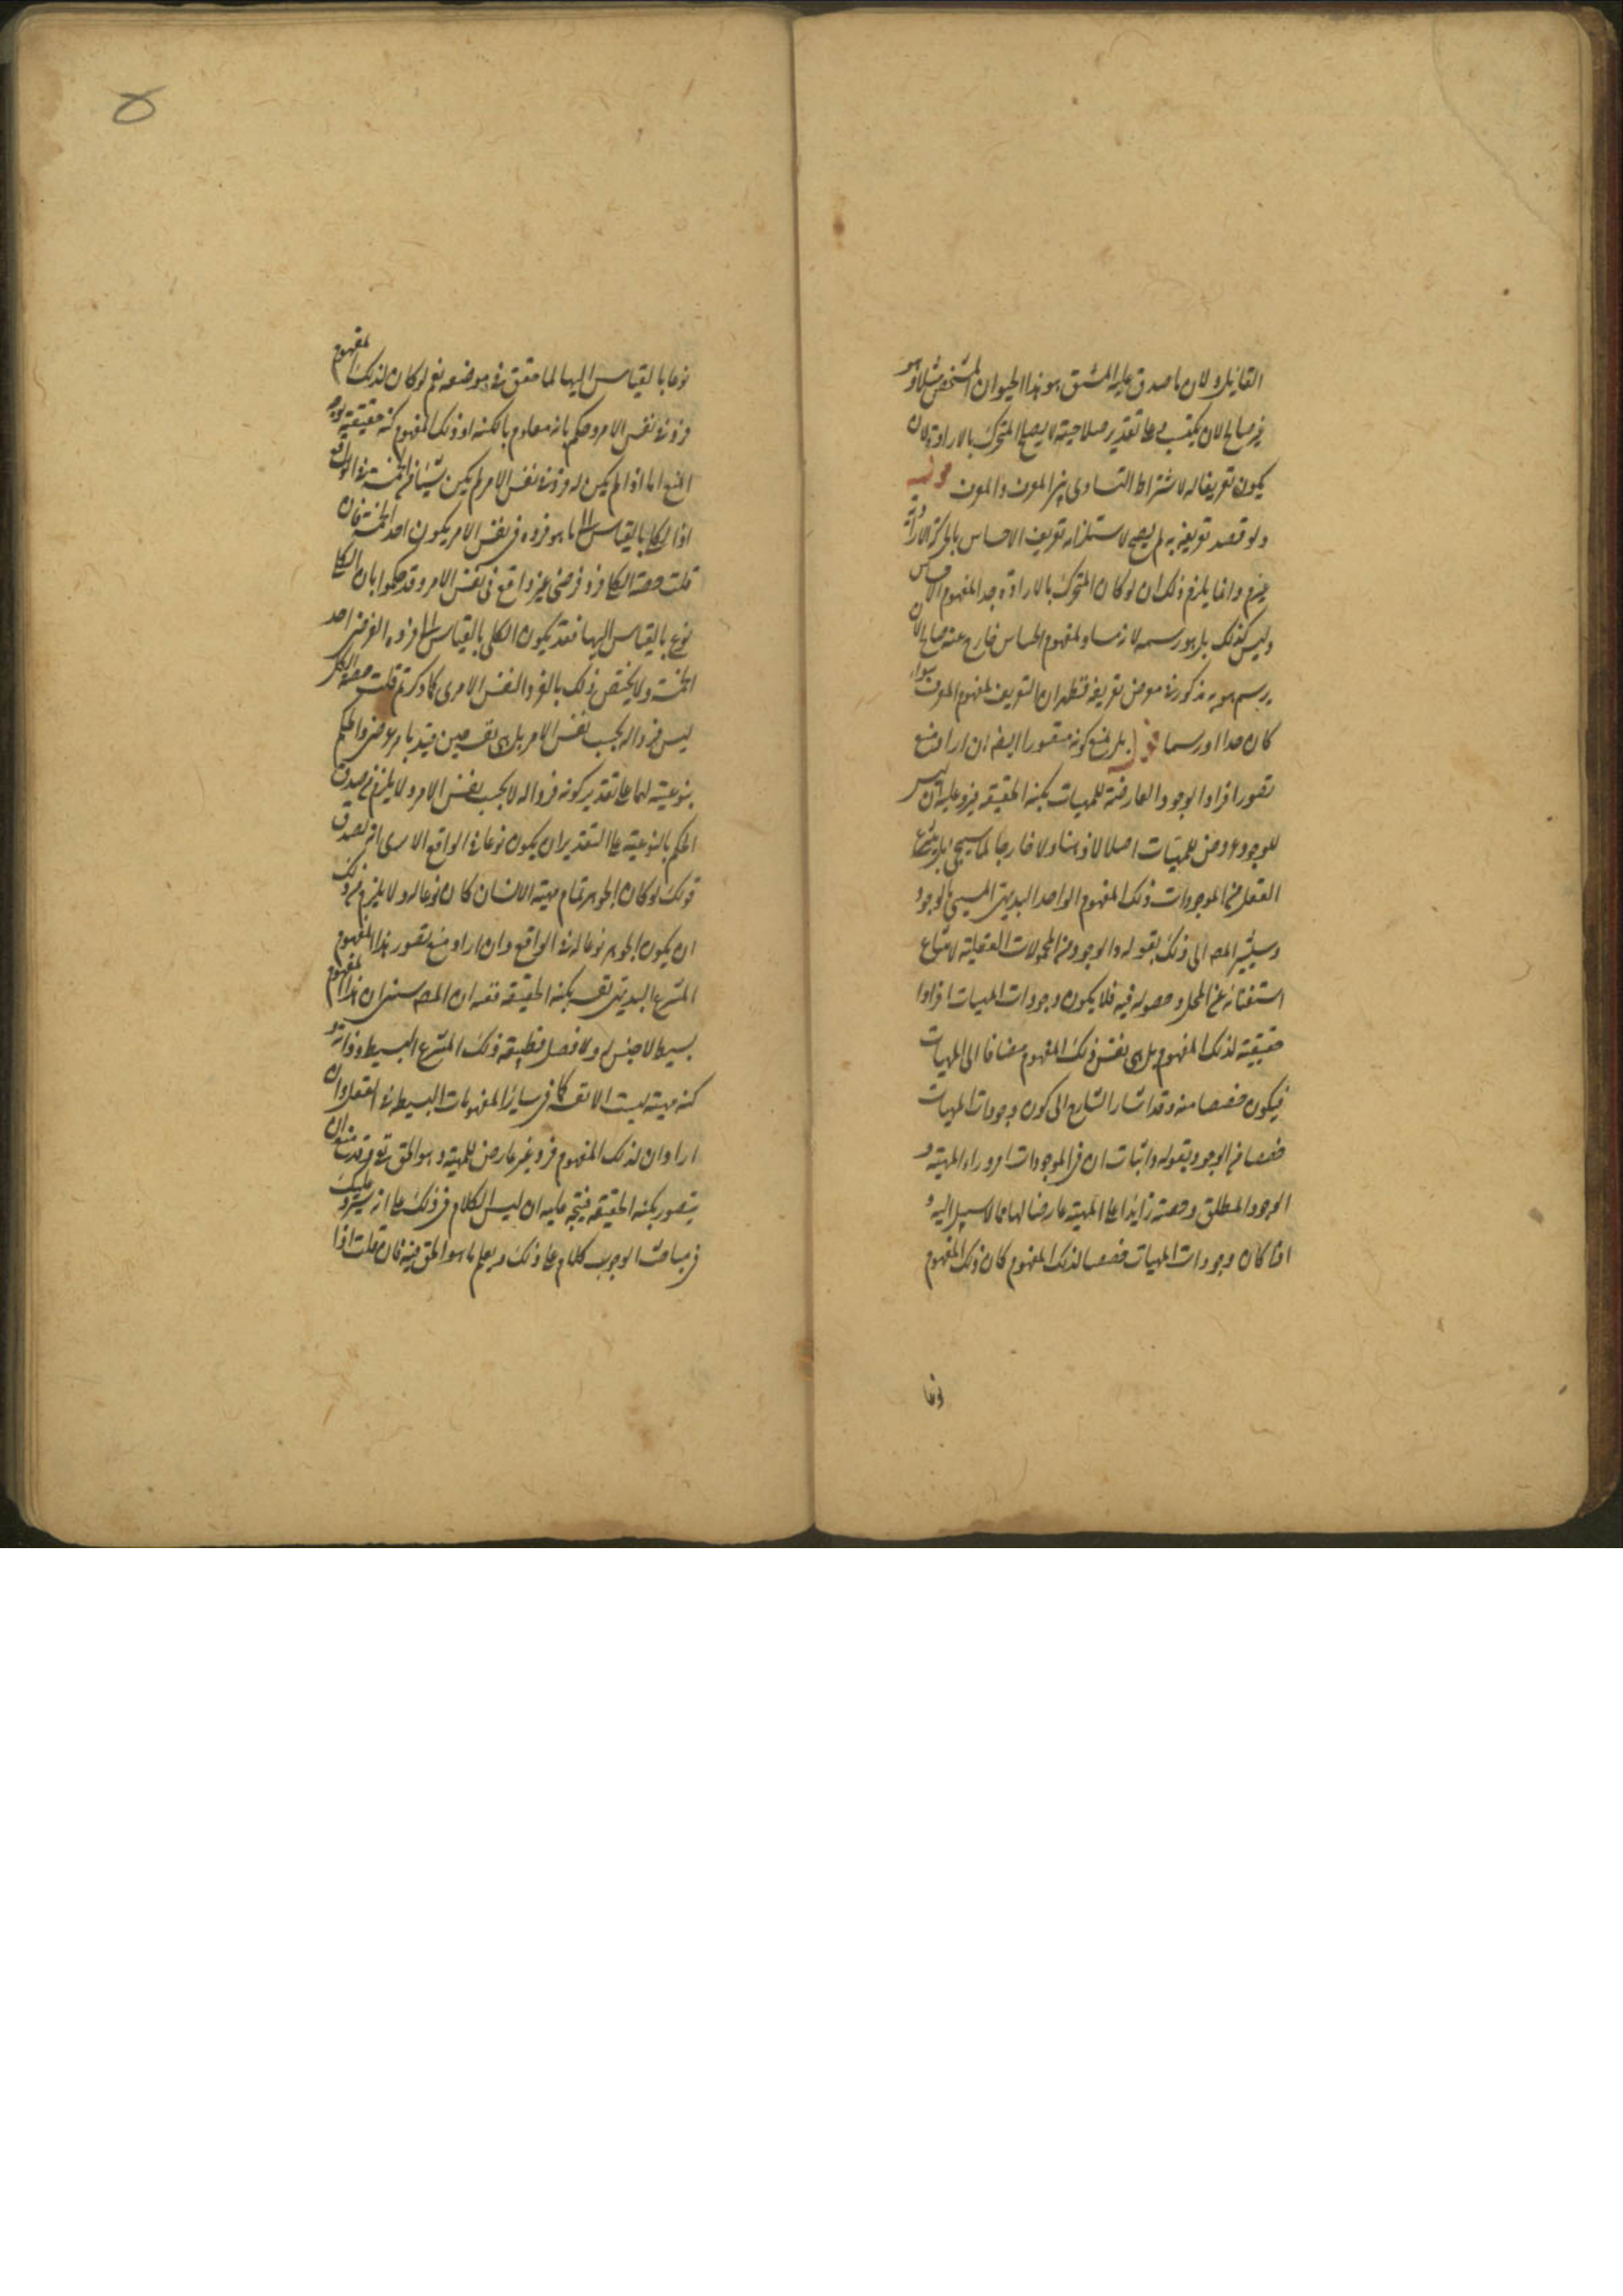 القايل ولان ما صدق عليه المشتق هو هذا الحيوان المتشخص مثلا وهو
غير صالح لان يكتسب وعلى تقدير صلاحيته لا يصلح المتحرك بالارادة لان
يكون تعريفا له لاشتراط التساوى بين المعرف والمعرف قوله
ولو قصد تعريفه به لم يصح لاستلزامه تعريف الاحساس بالحركة الارادية
وانما يلزم ذلك ان لو كان المتحرك بالارادة حدا لمفهوم الحساس
وليس كذلك بل هو رسم له لازم مساو لمفهوم الحساس خارج عنه صالح لان
يرسم هو به مذكور فى معرض تعريفه فظهر ان التعريف لمفهوم المعرف سواء
كان حدا او رسما قوله بل نمنع كونه متصورا ايضا ان اراد منع
تصور افراد الوجود العارضة للمهيات بكنه الحقيقة فيرد عليه ان ليس
للوجود عروض للمهيات اصلا لا ذهنا ولا خارجا لما سيجئ بل ينتزع
العقل من الموجودات ذلك المفهوم الواحد البديهى المسمى بالوجود
وسيشير المص الى ذلك بقوله والوجود من المحمولات العقلية لامتناع
استغنائه عن المحل وحصوله فيه فلا يكون وجودات المهيات افرادا
حقيقية لذلك المفهوم بل هى نفس ذلك المفهوم مضافا الى المهيات
فيكون حصصا منه وقد اشار الشارح الى كون وجودات المهيات
حصصا من الوجود بقوله واثبات ان فى الموجودات امرا وراء المهية و
الوجود المطلق وحصته زايدا على المهية عارضا لها مما لا سبيل اليه و
اذا كان وجودات المهيات حصصا لذلك المفهوم كان ذلك المفهوم
نوعا
نوعا بالقياس اليها لما حقق فى موضعه نعم لو كان لذلك المفهوم
فرد فى نفس الامر وحكم بانه معلوم بالكنه او ذلك المفهوم كنه حقيقته
المنع اما اذا لم يكن له فرد فى نفس الامر لم يكن شيئا من الخمسة فى الواقع
اذ الكلى بالقياس الى ما هو فرده فى نفس الامر يكون احد الخمسة فان
قلت حصة الكلى فرد فرضى غير واقع فى نفس الامر وقد حكموا بان الكلى
نوع بالقياس اليها فقد يكون الكلى بالقياس الى فرده الفرضى احد
الخمسة ولا يختص ذلك بالفرد النفس الامرى كما ذكرتم قلت حصة الكلى
ليس فردا له بحسب نفس الامر بل هى نفسه حين قيد بامر عرضى والحكم
بنوعيته لها على تقدير كونه فردا له لا بحسب نفس الامر ولا يلزم من صدق
الحكم بالنوعية على التقدير ان يكون نوعا فى الواقع الا يرى انه يصدق
قولك لو كان الجوهر تمام مهية الانسان كان نوعا له ولا يلزم من ذلك
ان يكون الجوهر نوعا له فى الواقع وان اراد منع تصور هذا المفهوم
المنتزع البديهى نفسه بكنه الحقيقة ففيه ان المص ان هذا المفهوم
بسيط لا جنس له ولا فصل فحقيقة ذلك المنتزع البسيط وذاته و
كنه مهيته ليست الا نفسه كما فى ساير المفهومات البسيطة فى العقل وان
اراد ان لذلك المفهوم فردا غير عارض للمهية وهو الحق تعالى
يتصور بكنه الحقيقة فيتجه عليه ان ليس الكلام فى ذلك على انه سيرد عليك
فى مباحث الوجوب كلام على ذلك ويعلم ما هو الحق فيه فان قلت اذا